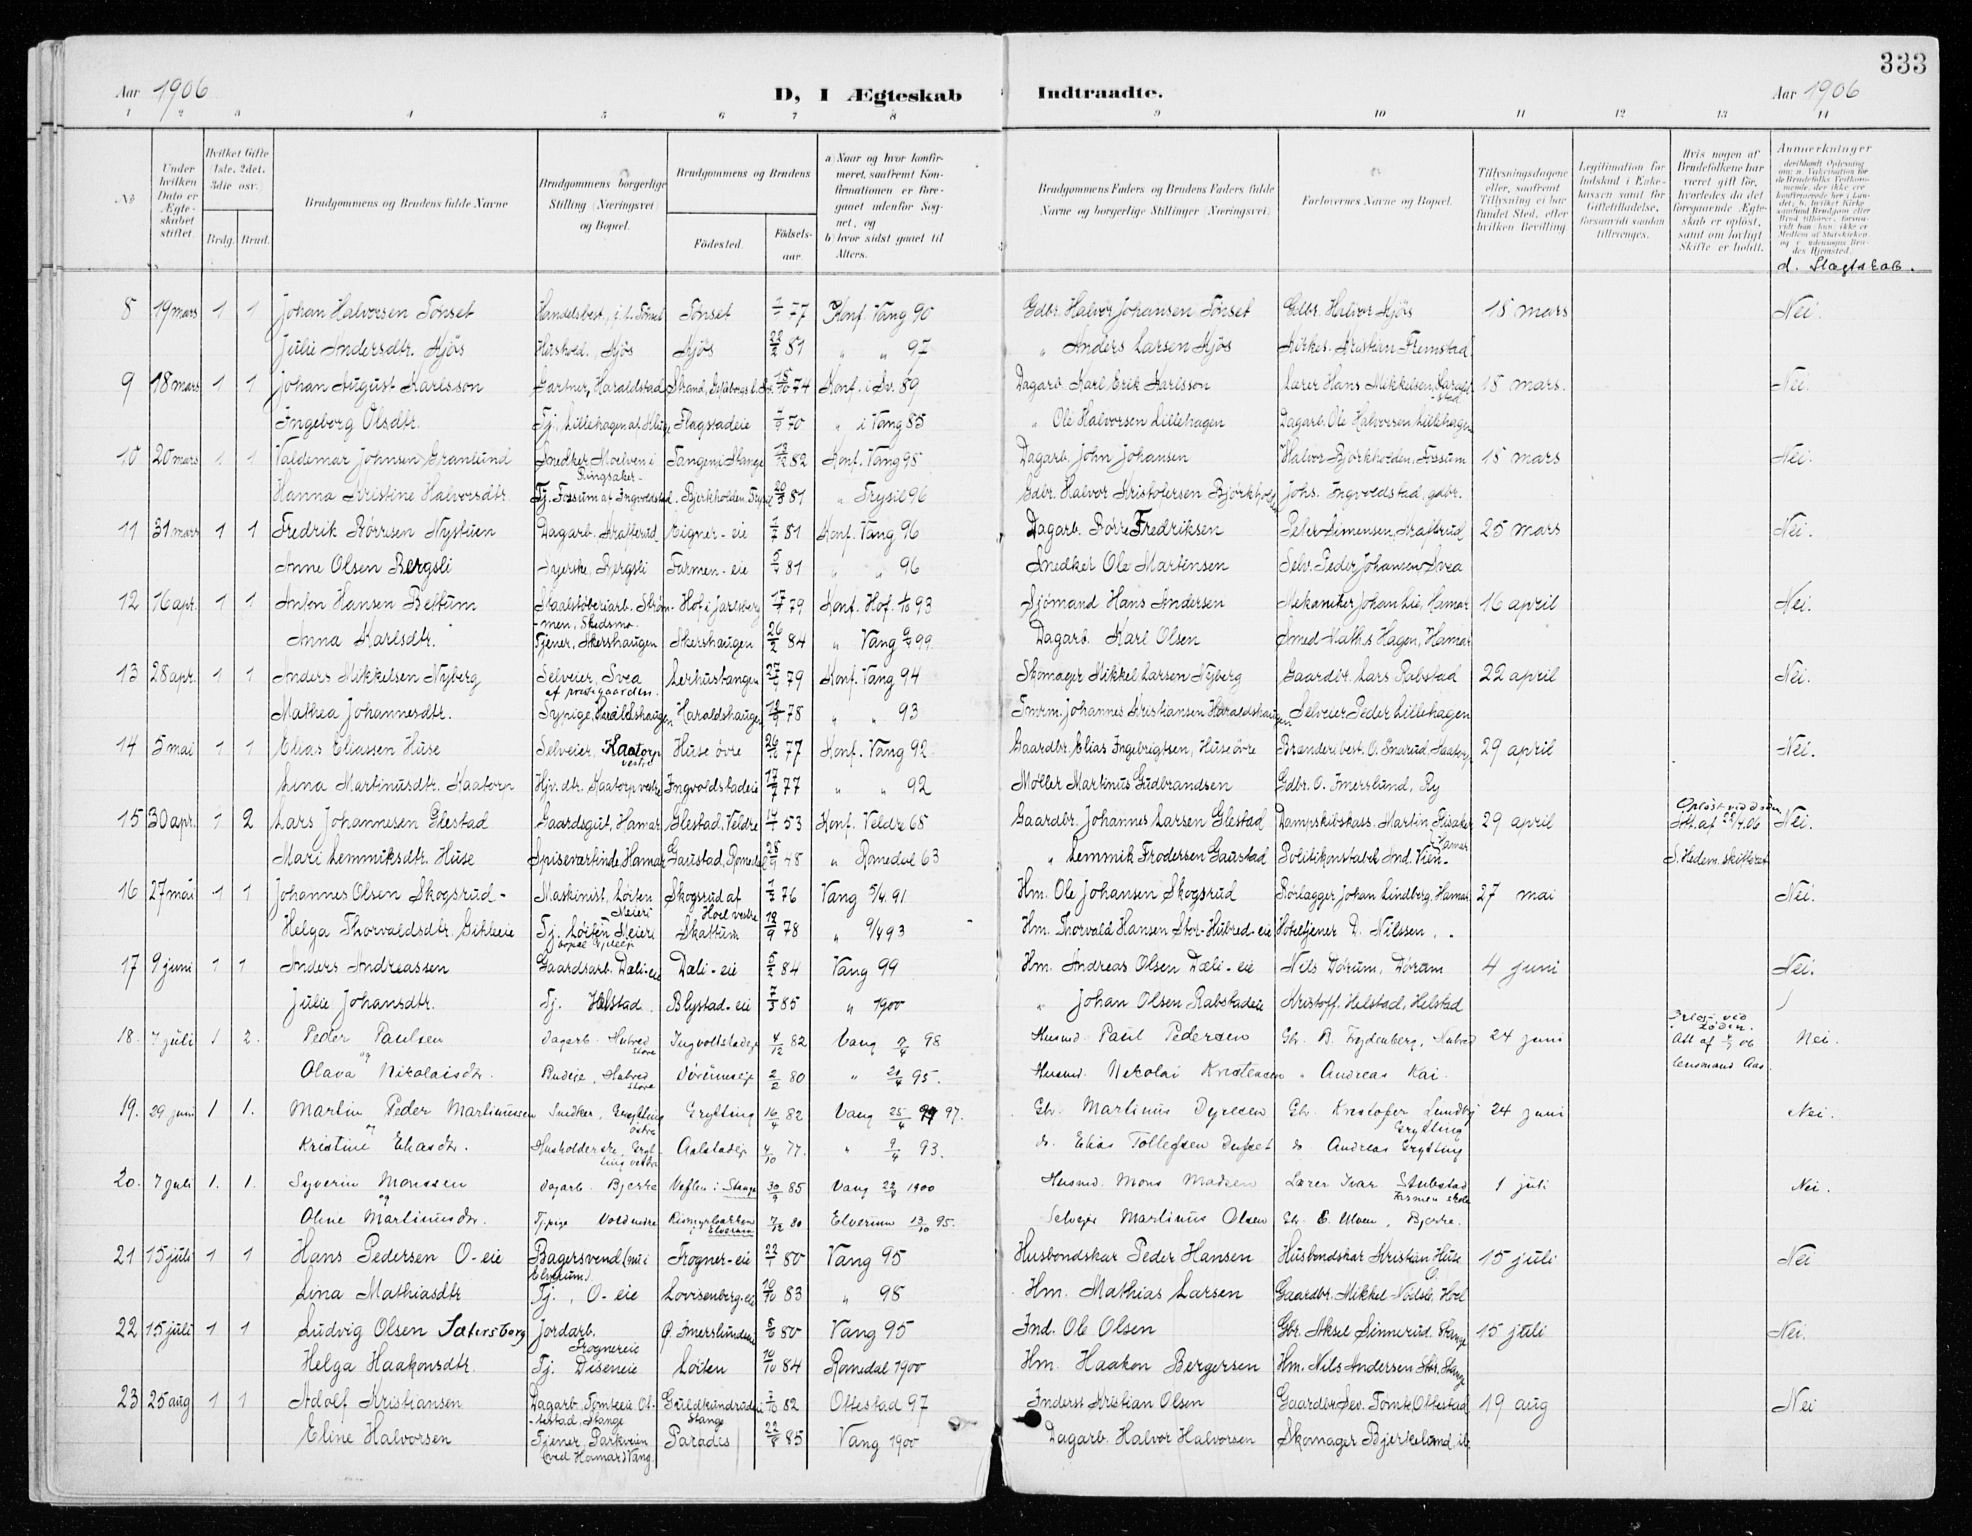 333
Aar 1906 D, I Ægteskab Indtraadte. Aar 1906
1 2 3 4 5 6 7 8 9 10 11 12 13 14
No
Under hvilken Dato er Ægteskabet stiftet.
Hvilket Gifte 1ste, 2det, 3die osv.
Brdg. Brud.
Brudgommens og Brudens fulde Navne
Brudgommens borgerlige Stilling (Næringsvei) og Bopæl.
Brudgommens og Brudens
Fødested. Fødselsaar.
a) Naar og hvor konfirmeret, saafremt Konfirmationen er foregaaet udenfor Sognet, og b) hvor sidst gaaet til Alters.
Brudgommens Faders og Brudens Faders fulde Navne og borgerlige Stillinger (Næringsvei)
Forlovernes Navne og Bopæl.
Tillysningsdagene eller, saafremt Tillysning ei har fundet Sted, efter hvilken Bevilling
Legitimation for Indskud i Enkekassen samt for Giftetilladelse, forsaavidt saadan tiltrænges.
Hvis nogen af Brudefolkene har været gift før, hvorledes da det foregaaende Ægteskab er opløst, samt om lovligt Skifte er holdt.
Anmærkninger
d. Slægtskab.
8 19 mars 1 1 Johan Halvorsen Tönset Handelsbest., i l. Tönset Tönset 77 Konf. Vang 90 Gdbr. Halvor Johansen Tönset Gdbr. Halvor Hjös 18 mars Nei.
Julie Andersdtr. Hjös Hushold., Hjös Hjös 22/2 81 " " 97 " Anders Larsen Hjös Kirkes. Kristian Flemstad
9 18 mars 1 1 Johan August Karlsson Gartner, Haraldstad 15/10 74 Konf. i Sv. 89 Dagarb. Karl Erik Karlsson Lærer Hans Mikkelsen, Haraldstad 18 mars. Nei
Ingeborg Olsdtr. Tj., Lillehagen af Huse Flagstadeie 70 " i Vang 85 " Ole Halvorsen Lillehagen Dagarb. Ole Halvorsen Lillehagen
10 20 mars 1 1 Valdemar Johnsen Granlund Snedker Moelven i Ringsaker Tangen i Stange 12/12 82 Konf. Vang 98 Dagarb. John Johansen Halvor Björkholden, Fossum 18 mars Nei.
Hanna Kristine Halvorsdtr Tj. Fossum af Ingvoldstad Bjerkholden Trysil 81 " Trysil 96 Gdbr. Halvor Kristofersen Björkholden Johs. Ingvoldstad, gdbr.
11 31 mars 1 1 Fredrik Börresen Nystuen Dagarb. Krafterud Eigner-eie 1/7 81 Konf. Vang 96 Dagarb. Börre Fredriksen Peter Simensen, Kraftrud 25 mars Nei.
Anne Olsen Bergsli Syerske, Bergsli Farmen-eie 81 " " 96 Snedker Ole Martinsen Selv. Peder Johansen, Svea
12 16 apr. 1 1 Anton Hansen Bettum Staalstöberiarb. Strömmen, Skedsmo. Hof i Jarlsberg 17/7 79 Konf. Hof. 1/10 93 Sjömand Hans Andersen Mekaniker Johan Lie, Hamar 16 april Nei.
Anna Karlsdtr. Tjener, Skershaugen Skershaugen 26/2 84 " Vang 99 Dagarb. Karl Olsen Smed Maths Hagen, Hamar
13 28 apr. 1 1 Anders Mikkelsen Nyberg Selveier, Svea af prestegaarden. Lerhustangen 79 Konf. Vang 94 Skomager Mikkel Larsen Nyberg Gaardbr. Lars Rabstad 22 april Nei.
Mathea Johannesdtr. Sypige, Haraldshaugen Haraldshaugen 78 " " 93 Tmrm. Johannes Kristiansen Haraldshaugen Selveier Peder Lillehagen
14 5 mai 1 1 Elias Eliassen Huse Selveier, Kaatorp vestre Huse övre 77 Konf. Vang 92 Gaardbr. Elias Ingebrigtsen, Huse övre Brænderibest. O. Snarud, Kaatorp 29 april Nei.
Lina Martinusdtr. Kaatorp Hjv. dtr. Kaatorp vestre Ingvoldstadeie 17/7 77 " " 92 Möller Martinus Gudbrandsen Gdbr. O. Imerslund, Ry
15 30 apr. 1 2 Lars Johannesen Glestad Gaardsgut, Hamar Glestad, Veldre 53 Konf. Veldre 68 Gaardbr. Johannes Larsen Glestad Dampskibskass. Martin Fisaker Hamar 29 april Nei.
Mari Lemmiksdtr. Huse Spiseværtinde, Hamar Gaustad, Romedal 48 " Romedal 63 " Lemmik Frodersen Gaustad Politikonstabel And. Vien S. Hedem. skifteret
16 27 mai 1 1 Johannes Olsen Skogsrud - Maskinist, Löiten Meieri Skogsrud af Hoel vestre 76 Vang 5/4 91 Hm. Ole Johansen Skogsrud Rörlægger Johan Lindberg, Hamar 27 mai Nei.
Helga Thorvaldsdtr. Gikleie Tj. Löiten Meieri Skattum 12/9 78 " 9/4 93 Hm. Thorvald Hansen Stor-Hubred-eie Hoteltjener D. Nilssen, "
17 9 juni 1 1 Anders Andreassen Gaardsarb. Dæli-eie Dæli-eie 5/2 84 Vang 99 Hm. Andreas Olsen Dæli-eie Nils Dörum, Dörum 4 juni Nei.
Julie Johansdtr. Tj. Helstad Blystad-eie 7/3 85 " 1900 " Johan Olsen Rabstadeie Kristoff. Helstad, Helstad
18. 7 juli 1 2. Peder Paulsen Dagarb. Hubred store Ingvoldstadeje 4/12 82 Vang 98 Husmd. Paul Pedersen Gbr. B. Frydenberg, Hubred 24 juni Att af 06 Nei.
og Olava Nikolaisdr. Budeie, Hubred store Dörumseje 2/2 80 " 95. Husmd. Nekolai Kristensen " Andreas Kai. lensmand Aas
19. 29 juni 1 1. Martin Peder Martinussen Snedker, Grytting östre Grytting 16/4 82 Vang 25/4 97. Gbr. Martinus Dyresen Gbr. Kristofer Lundby Grytting 24 juni Nei.
og Kristine Eliasdr. Husholderske, Grytting vestre Aalstadeje 4/10 77. " 9/4 93. d. Elias Tollefsen do Andreas Grytting
20. 7 juli 1. 1. Syverin Monssen Dagarb. Bjerke Veflen i Stange 30/9 85 Vang 1900 Husmd. Mons Madsen Lærer Ivar Stubstad Farmen skole 1 juli Nei.
og Oline Martinusdr. Tjpige Voldmdre Elverum 7/12 80 Elverum 13/10 95. Selvejer Martinus Olsen Gbr. E. Ulven, Bjerke.
21 15 juli 1 1 Hans Pedersen O-eie Bagersvend (nu i Elverum) Frogner-eie 80 Vang 95 Husbondskar Peder Hansen Husbondskar Kristian Huse, O. 15 juli Nei
Lina Mathiasdtr Tj., O-eie Lovisenberg-eie 10/10 83 " 98 Hm. Mathias Larsen Gaardbr. Mikkel Nödsle, Hoel
22 15 juli 1 1 Ludvig Olsen Sætersborg Jordarb. Frognereie Ö. Imerslundeie 80 Vang 95 Ind. Ole Olsen Gbr. Aksel Sinnerud, Stange 15 juli Nei.
Helga Haakonsdtr. Tj. Diseneie Löiten 10/10 84 Romedal 1900 Hm. Haakon Bergersen Hm. Nils Andersen Stange
23 25 aug 1 1 Adolf Kristiansen Dagarb. Tomteeie Ottestad, Stange Guldkundradeie Stange 7/10 82 Ottestad 97 Inderst Kristian Olsen Gaardbr Sev. Tomte, Ottestad 19 aug Nei
Eline Halvorsen Tjener, Parkveien (ved Hamar) Vang. Paradis 22/8 85 Vang 1900 Dagarb. Halvor Halvorsen Skomager Bjerkelund, ib.